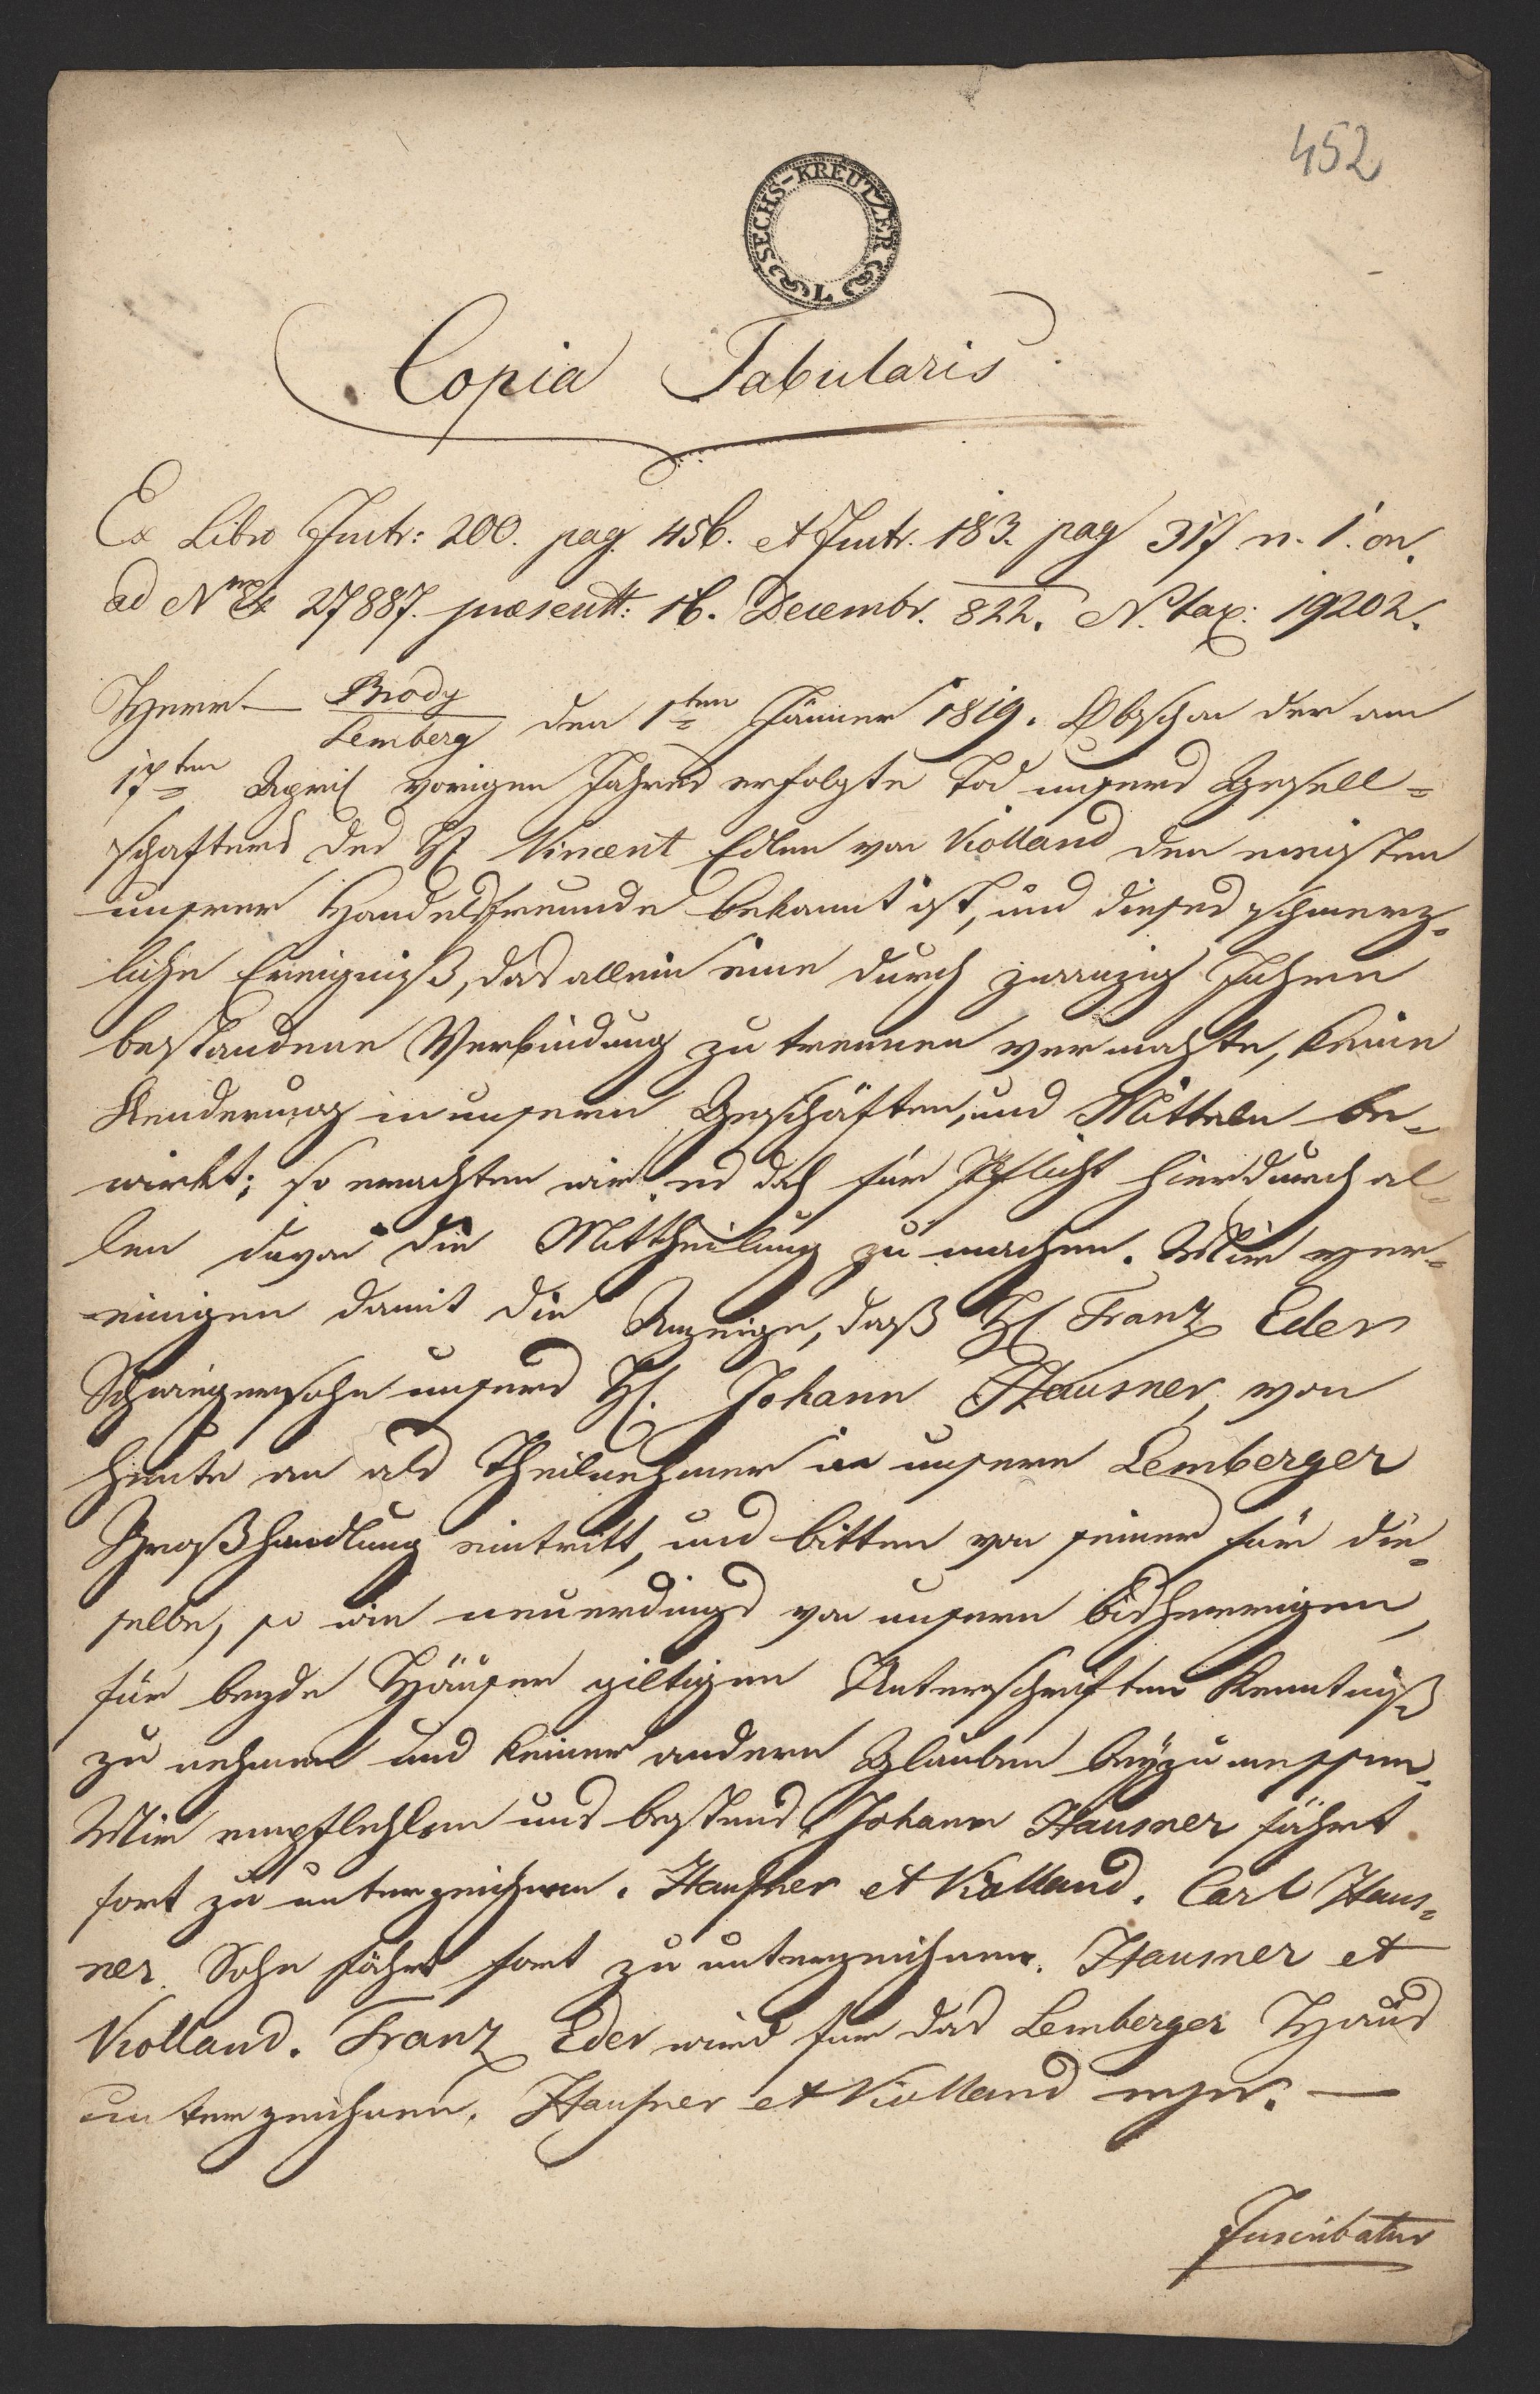 452
SECHS-KREUTZER
L
Copia Tabularis
Ex Libro Instr: 200. pag. 456. et Instr. 183. pag 317. n. 1. on.
ad Nrum 27887. praesentt: 16. Decembr. 822. N. tax: 19202.
Herr — Brody
Lemberg den 1ten Jänner 1819. Obschon der am
17ten April vorigen Jahres erfolgte Tod unsers Gesell=
schafters des H Vincent Edlen von Violland den meisten
unserer Handelsfreunde bekannt ist, und dieses schmerz=
liche Ereigniß, das allein eine durch zwanzig Jahre
bestandene Verbindung zu trennen vermochte, keine
Aenderung in unsern Geschäften, und Mitteln be=
wirkt; so erachten wir es doch für Pflicht hierdurch al=
len davon die Mittheilung zu machen. Wir ver=
einigen damit die Anzeige, daß H Franz Eder
Schwiegersohn unsers H. Johann Hausner, von
heute an als Theilnehmer in unsere Lemberger
Großhandlung eintritt, und bitten von seiner für die=
selbe, so wie neuerdings von unsern bisherrigen,
für beyde Häuser giltigen Unterschriften Kenntniß
zu nehmen und keiner andern Glauben beyzumessen.
Wir empflehlen uns bestens, Johann Hausner fährt
fort zu unterzeichnen. Hausner et Violland. Carl Haus=
ner Sohn fährt fort zu unterzeichnen. Hausner et
Violland. Franz Eder wird für das Lemberger Haus
unterzeichnen. Hausner et Violland mpr. —
Inscribatur